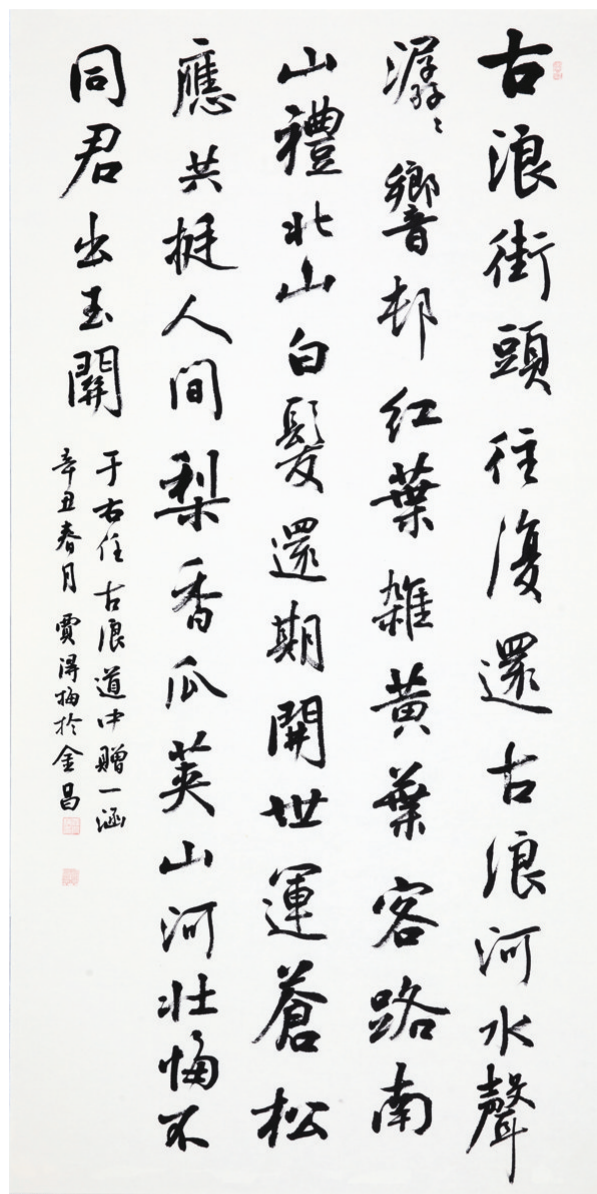 古浪街頭往復還古浪河水聲
潺潺響邨紅葉雜黄葉客路南
山禮北山白髮還期開世運蒼松
應共挺人間梨香瓜美山河壯悔不
同君出玉關
于右任古浪道中贈一涵
辛丑春月賈得梅於金昌